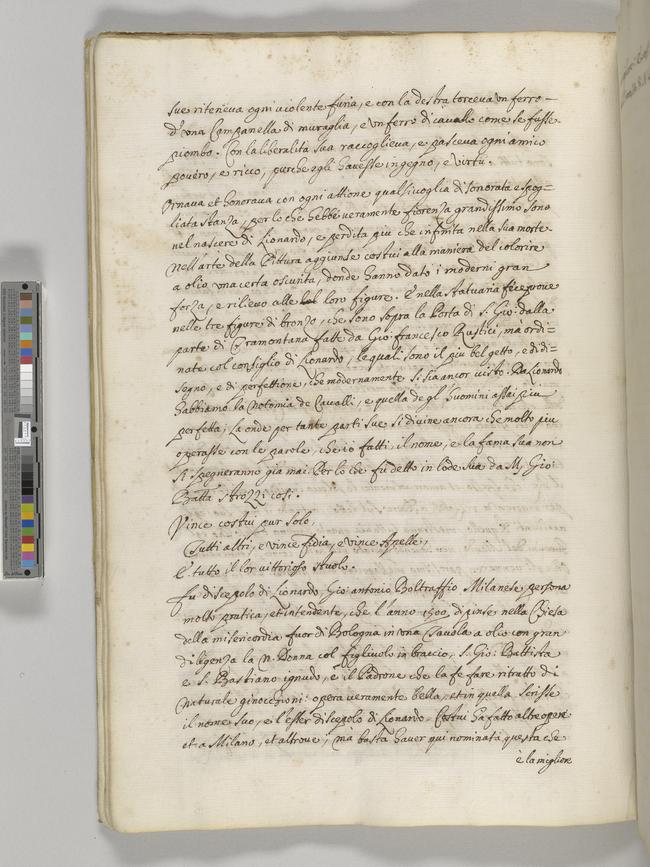 sue riteneva ogni violente furia, e con la destra torceva un ferro
d'una Campanella di muraglia, e un ferro di cavallo come se fusse
piombo. Con la liberalita sua raccoglieva, e pasceva ogni amico
povero, e ricco, purche egli havesse ingegno, e virtu.
Ornava et honorava con ogni attione qual si voglia disonorata e spog=
liata stanza, per lo che hebbe veramente fiorenza grandissimo dono
nel nascere di Lionardo, e perdita piu che infinita nella sua morte.
Nell'arte della Pittura aggiunse costui alla maniera del colorire
a olio una certa oscurita, donde hanno dato i moderni gran
forza, e rilievo alle loro figure. E nella statuaria fece prove
nelle tre figure di bronzo, che sono sopra la Porta di S. Gio: dalla
parte di Tramontana fatte da Gio: francesco Rustici, ma ordi=
nate col consiglio di Lionardo, le quali sono il piu bel getto, e di di=
segno, e di perfettione, che modernamente si sia ancor visto. Da Lionardo
habbiamo la Notomia de Cavalli, e quella de gl'huomini assai piu
perfetta; La onde per tante parti sue si divine ancora che molto piu
operasse con le parole, che io fatti, il nome, e la fama sua non
si spegneranno gia mai. Per lo che fu detto in lode sua da M. Gio:
Batta Strozzi cosi.
Vince costui pur solo,
Tutti altri, e vince fidia, e vince Apelle,
E tutto il lor vittorioso stuolo.
Fu discepolo di Lionardo, Gio: antonio Boltraffio Milanese persona
molto pratica, et intendente, che l'anno 1500, dipinse nella Chiesa
della misericordia fuor di Bologna in una Tavola a olio con gran
diligenza la N. Donna col figlivolo in braccio, S. Gio: Battista
e S. Bastiano ignudo, e il Padrone che la fe fare ritratto di
Naturale ginocchioni: opera veramente bella, et in quella scrisse
il nome suo, e l'esser discepolo di Lionardo. Costui ha fatto altre opere
et a Milano, et altrove; ma basta haver qui nominata questa che
è la migliore